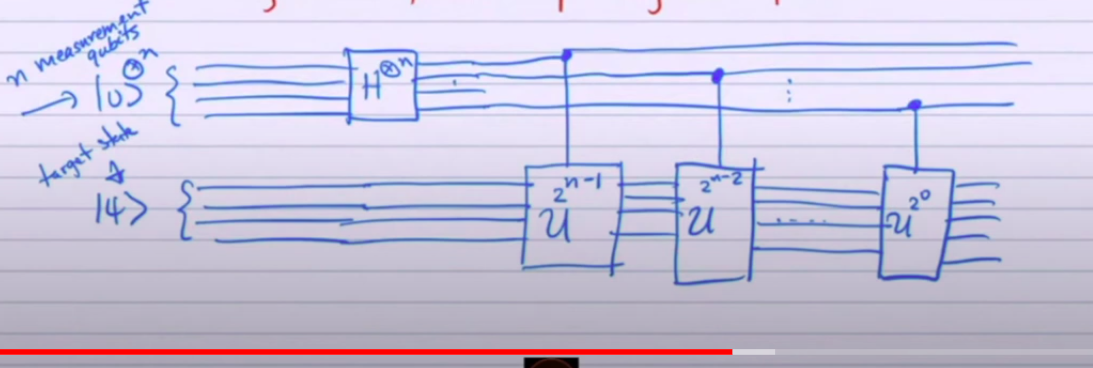 n measurement
qubits
|0⟩^⊗n
H^⊗n
target state
|ψ⟩
U^2^n-1
U^2^n-2
.....
U^2^0